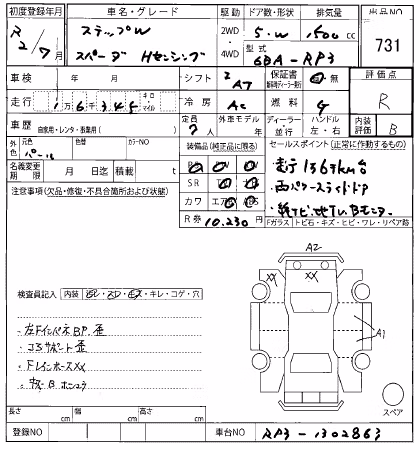 初度登録年月 車名・グレード 駆動 ドア数・形状 排気量 出品NO
R2/7月 ステップW スパーダ Hセンシング 2WD 4WD 5.W 1500cc 731
型式 6BA-RP3
車検 年 月 シフト 2 AT 保証書 無 評価点
走行 16345 キロ マイル 冷房 AC 燃料 G R
車歴 自家用・レンタ・事業用( ) 定員 7人 外車モデル 年 ディーラー 並行 ハンドル 左・右 内装評価 B
外色 元色 パール 色替 カラーNO 装備品(純正品に限る) セールスポイント(正常に作動するもの)
名義変更期限 月 日迄 積載 t
SR
注意事項(欠品・修復・不具合箇所および状態)
カワ
R券 10.230円
・走行1.6千km台
・両パワースライドドア
・純ナビ
Fガラス トビ石・キズ・ヒビ・ワレ・リペア跡
検査員記入 内装 キレ・コゲ・穴
A2
XX XX
A1
・左Fインパネ BP 歪
・コアサポート歪
・FレインホースXX
スペア
長さ cm 幅 cm 高さ cm
登録NO 車台NO RP3-1302863